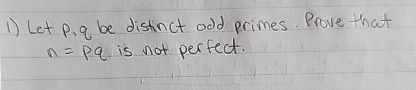 1) Let p,q be distinct odd primes. Prove that
n = pq is not perfect.